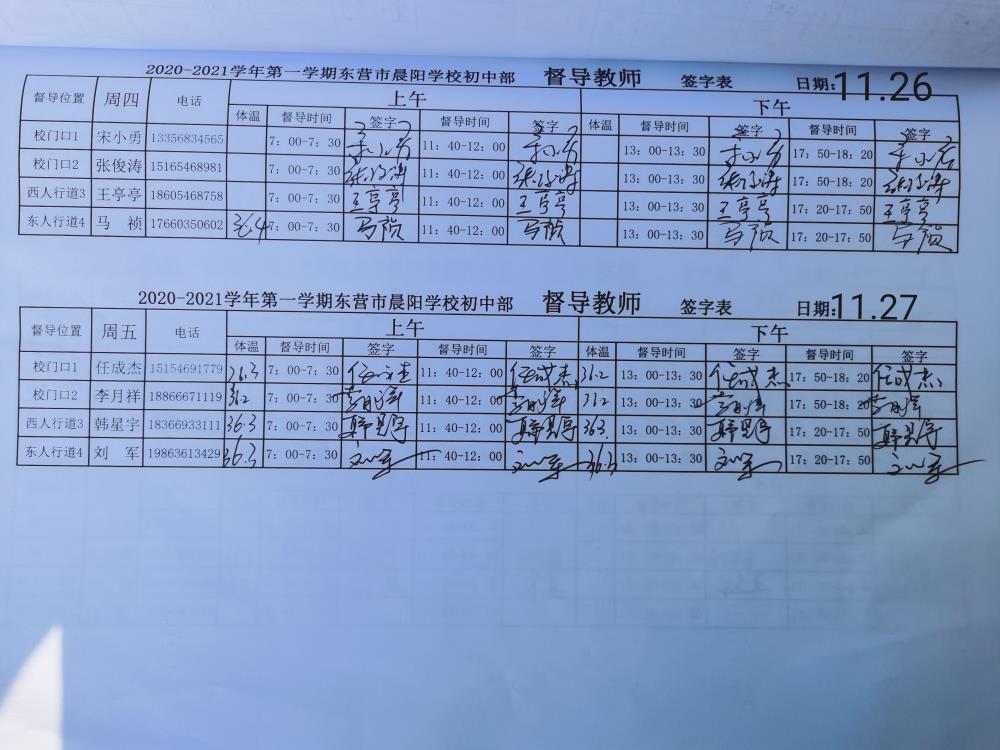 2020-2021学年第一学期东营市晨阳学校初中部 督导教师 签字表 日期:11.26
督导位置 周四 电话 上午 下午
体温 督导时间 签字 督导时间 签字 体温 督导时间 签字 督导时间 签字
校门口1 宋小勇 13356834565 7：00-7：30 11：40-12：00 13：00-13：30 17：50-18：20
校门口2 张俊涛 15165468981 7：00-7：30 张俊涛 11：40-12：00 张俊涛 13：00-13：30 张俊涛 17：50-18：20 张俊涛
西人行道3 王亭亭 18605468758 7：00-7：30 王亭亭 11：40-12：00 王亭亭 13：00-13：30 王亭亭 17：20-17：50 王亭亭
东人行道4 马 祯 17660350602 36.4 7：00-7：30 马祯 11：40-12：00 马祯 13：00-13：30 马祯 17：20-17：50 马祯
2020-2021学年第一学期东营市晨阳学校初中部 督导教师 签字表 日期:11.27
督导位置 周五 电话 上午 下午
体温 督导时间 签字 督导时间 签字 体温 督导时间 签字 督导时间 签字
校门口1 任成杰 15154691779 36.3 7：00-7：30 任成杰 11：40-12：00 任成杰 36.2 13：00-13：30 任成杰 17：50-18：20 任成杰
校门口2 李月祥 18866671119 36.2 7：00-7：30 李月祥 11：40-12：00 李月祥 13：00-13：30 李月祥 17：50-18：20 李月祥
西人行道3 韩星宇 18366933111 36.3 7：00-7：30 韩星宇 11：40-12：00 韩星宇 363. 13：00-13：30 韩星宇 17：20-17：50 韩星宇
东人行道4 刘 军 19863613429 36.3 7：00-7：30 刘军 11：40-12：00 刘军 36.3 13：00-13：30 刘军 17：20-17：50 刘军